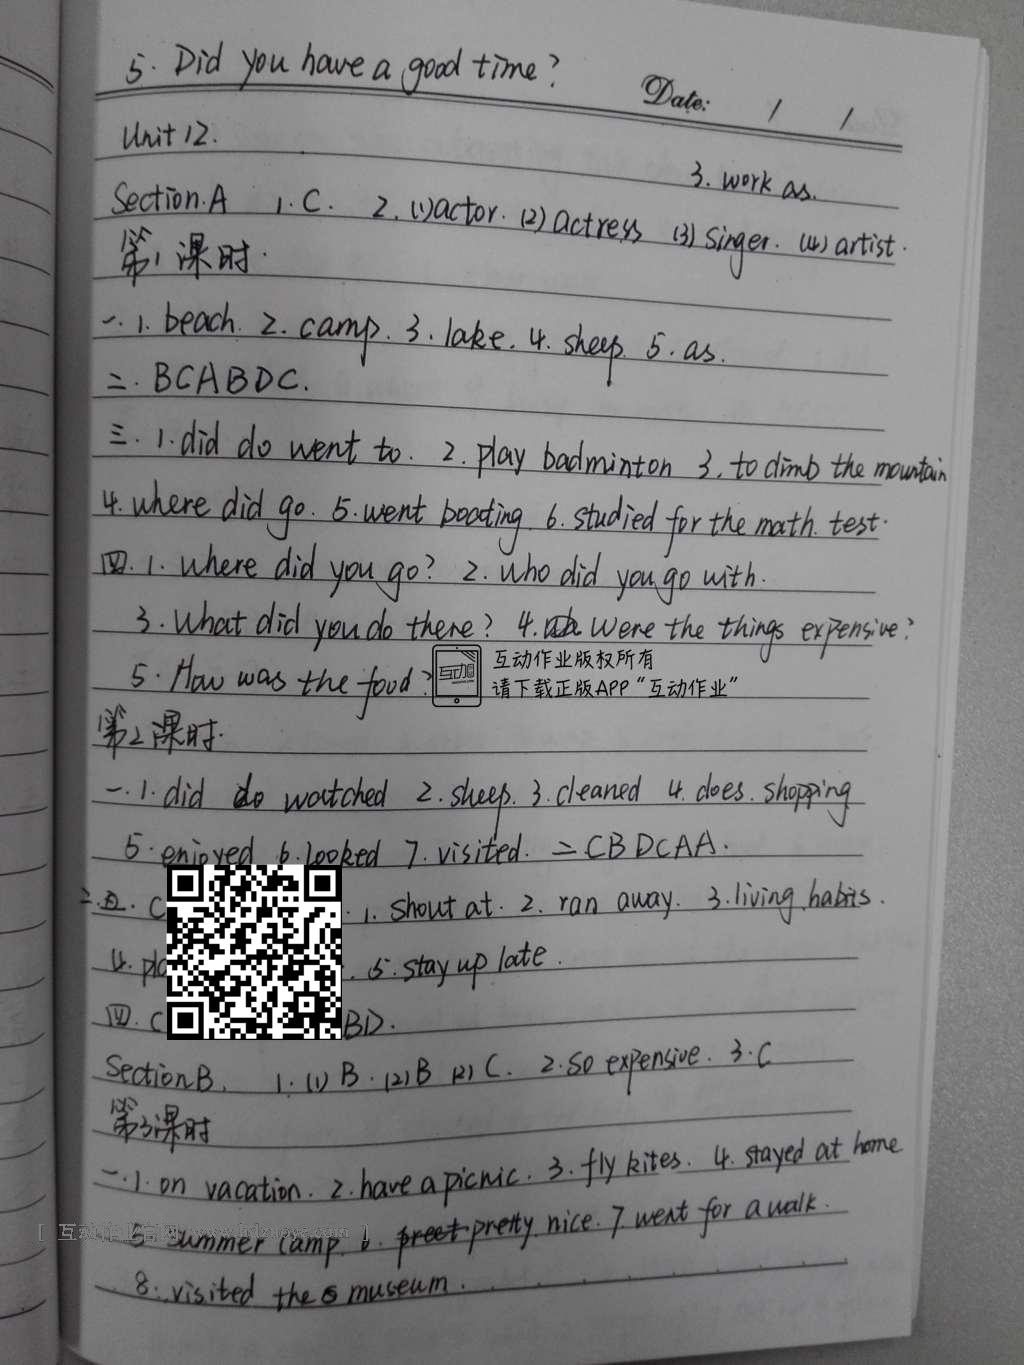 5. Did you have a good time?
Date: / /
Unit 12.
3. work as.
Section.A 1. C. 2. (1)actor. (2) actress (3) singer. (4) artist.
第1课时.
一. 1. beach. 2. camp. 3. lake. 4. sheep. 5. as.
二. BCABDC.
三. 1. did do went to. 2. play badminton 3. to climb the mountain
4. where did go. 5. went boating. 6. studied for the math test.
四. 1. Where did you go? 2. Who did you go with.
3. What did you do there? 4. Were the things expensive?
5. How was the food?
互动作业版权所有
请下载正版APP“互动作业”
第2课时.
一. 1. did do watched 2. sheep. 3. cleaned 4. does. shopping
5. enjoyed 6. looked 7. visited. 二 CBDCAA.
三. 五. C . 1. shout at. 2. ran away. 3. living habits.
4. pla . 5. stay up late.
四. C BD.
Section B. 1. (1) B. (2) B (2) C. 2. so expensive. 3. C
第3课时
一. 1. on vacation. 2. have a picnic. 3. fly kites. 4. stayed at home
5 summer camp. 6. preet pretty nice. 7. went for a walk.
8. visited the museum.